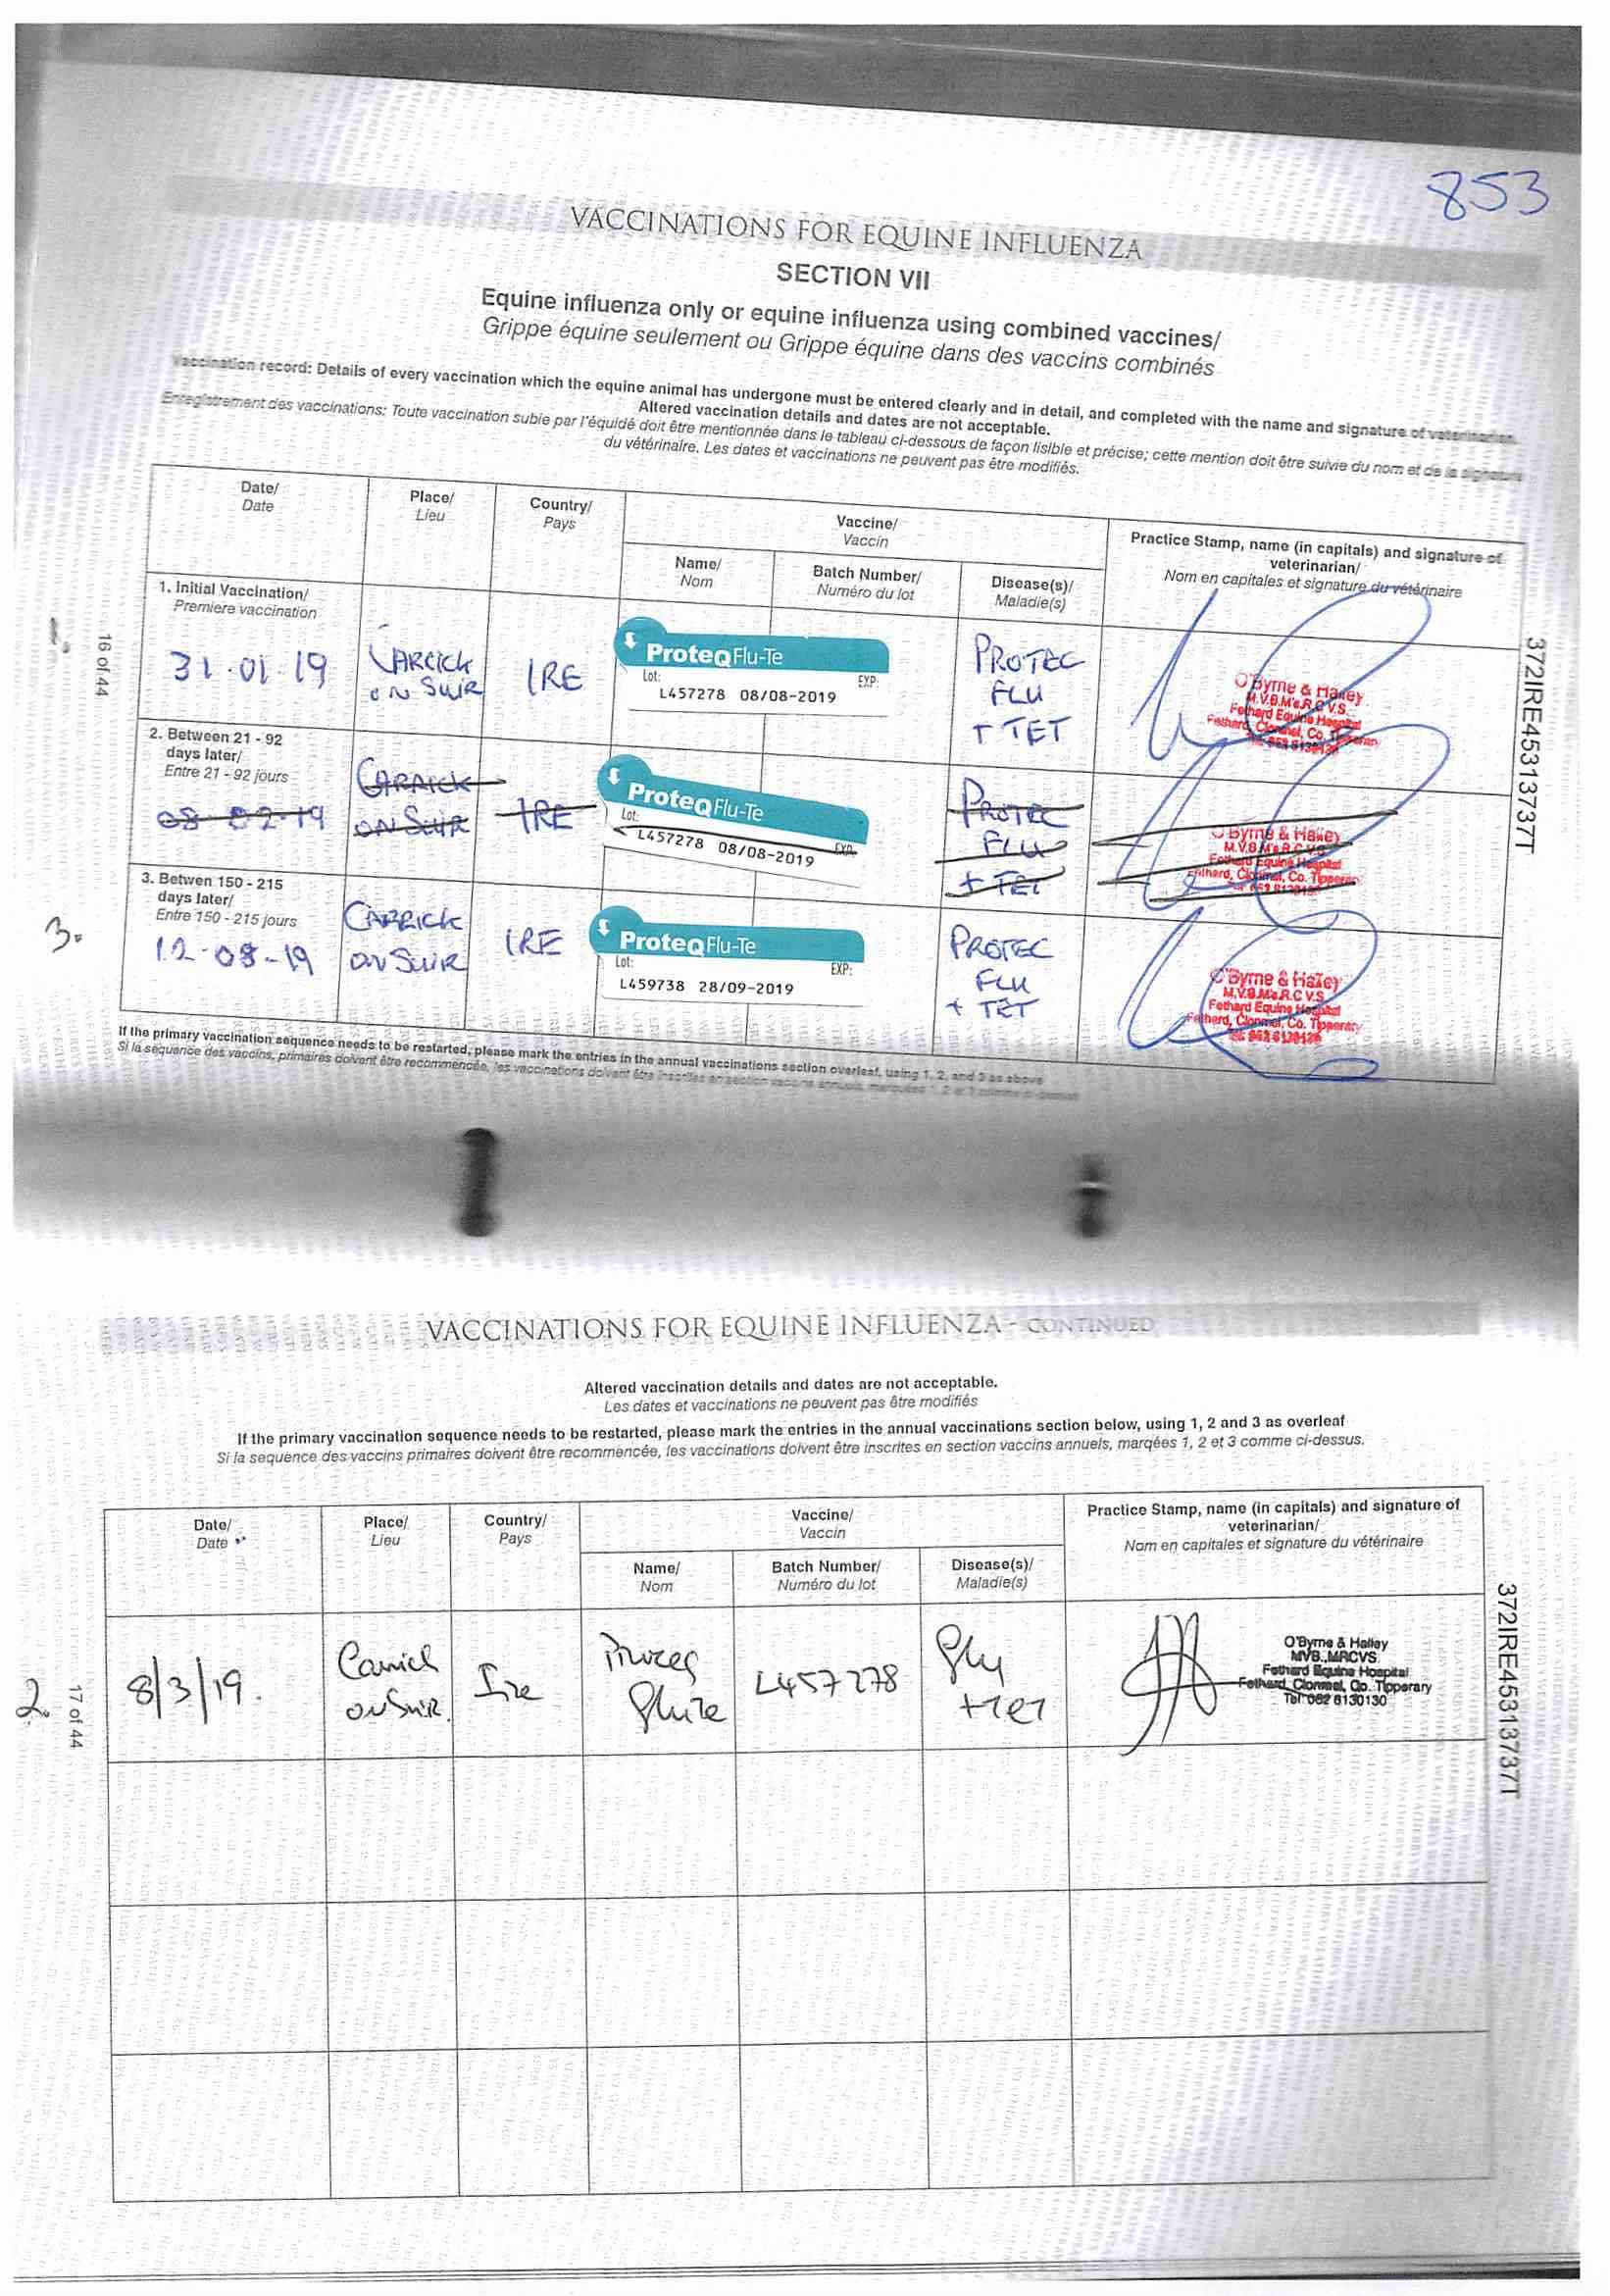 853
VACCINATIONS FOR EQUINE INFLUENZA
SECTION VII
Equine influenza only or equine influenza using combined vaccines/
Grippe équine seulement ou Grippe équine dans des vaccins combinés
Vaccination record: Details of every vaccination which the equine animal has undergone must be entered clearly and in detail, and completed with the name and signature of veterinarian.
Altered vaccination details and dates are not acceptable.
Enregistrement des vaccinations: Toute vaccination subie par l'équidé doit être mentionnée dans le tableau ci-dessous de façon lisible et précise; cette mention doit être suivie du nom et de la signature
du vétérinaire. Les dates et vaccinations ne peuvent pas être modifiés.
Date/
Date
Place/
Lieu
Country/
Pays
Vaccine/
Vaccin
Name/
Nom
Batch Number/
Numéro du lot
Disease(s)/
Maladie(s)
Practice Stamp, name (in capitals) and signature of
veterinarian/
Nom en capitales et signature du vétérinaire
1.
16 of 44
1. Initial Vaccination/
Premiere vaccination
31.01.19
CARRICK
ON SUIR
IRE
ProteqFlu-Te
Lot: EXP:
L457278 08/08-2019
PROTEC
FLU
+ TET
O'Byrne & Halley
M.V.B.M's.R.C.V.S.
Fethard Equine Hospital
Fethard, Clonmel, Co. Tipperary
372IRE45313737T
2. Between 21 - 92
days later/
Entre 21 - 92 jours
08 02-19
CARRICK
ON SUIR
IRE
ProteqFlu-Te
Lot: EXP:
L457278 08/08-2019
PROTEC
FLU
+ TET
O'Byrne & Halley
M.V.B.M's.R.C.V.S
Fethard Equine Hospital
Fethard, Clonmel, Co. Tipperary
3.
3. Betwen 150 - 215
days later/
Entre 150 - 215 jours
12-08-19
CARRICK
ON SUIR
IRE
ProteqFlu-Te
Lot: EXP:
L459738 28/09-2019
PROTEC
FLU
+ TET
O'Byrne & Halley
M.V.B.M's.R.C.V.S
Fethard Equine Hospital
Fethard, Clonmel, Co. Tipperary
If the primary vaccination sequence needs to be restarted, please mark the entries in the annual vaccinations section overleaf, using 1, 2, and 3 as above
Si la sequence des vaccins, primaires doivent être recommencée, les vaccinations doivent être inscrites en section vaccins annuels, marquées 1, 2 et 3 comme ci-dessus
VACCINATIONS FOR EQUINE INFLUENZA - CONTINUED
Altered vaccination details and dates are not acceptable.
Les dates et vaccinations ne peuvent pas être modifiés
If the primary vaccination sequence needs to be restarted, please mark the entries in the annual vaccinations section below, using 1, 2 and 3 as overleaf
Si la sequence des vaccins primaires doivent être recommencée, les vaccinations doivent être inscrites en section vaccins annuels, marqées 1, 2 et 3 comme ci-dessus.
Date/
Date
Place/
Lieu
Country/
Pays
Vaccine/
Vaccin
Name/
Nom
Batch Number/
Numéro du lot
Disease(s)/
Maladie(s)
Practice Stamp, name (in capitals) and signature of
veterinarian/
Nom en capitales et signature du vétérinaire
2.
17 of 44
8/3/19.
Carrick
on Suir.
Ire
Flute
L457278
Flu
+Tet
O'Byrne & Halley
MVB.,MRCVS
Fethard Equine Hospital
Fethard, Clonmel, Co. Tipperary
Tel: 052 6130130
372IRE45313737T